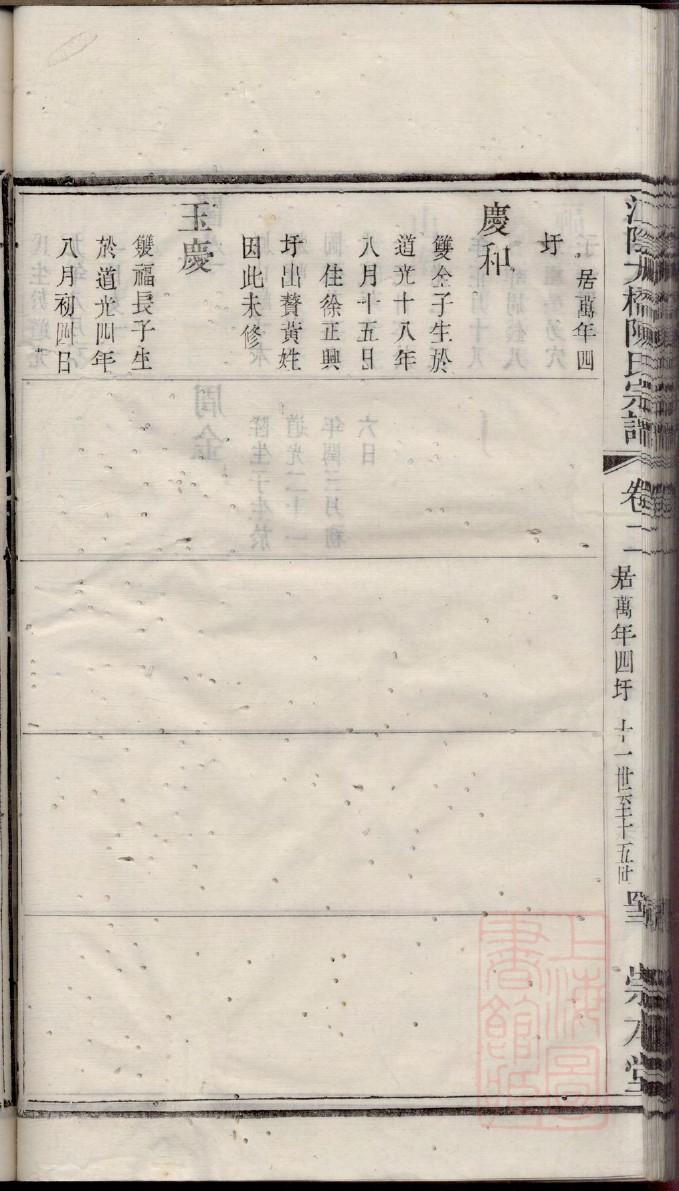 居萬年四
圩
慶和
雙全子生於
道光十八年
八月十五日
住徐正興
圩出贅黃姓
因此未修
玉慶
雙福長子生
於道光四年
八月初四日
江陰 橋陳氏宗譜
卷二
居萬年四圩
十一世至十五世
崇本堂
上海圖書館